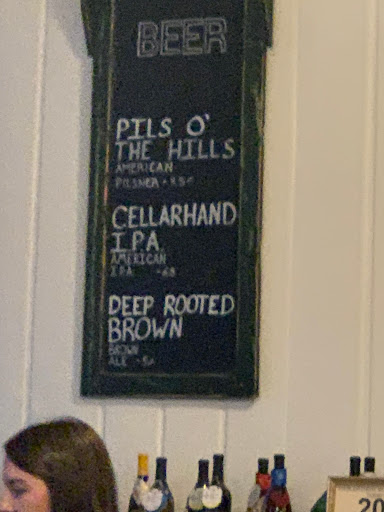 BEER
PILS O'
THE HILLS
AMERICAN
PILSNER
CELLARHAND
IPA
AMERICAN
IPA
DEEP ROOTED
BROWN
BROWN
ALE
20